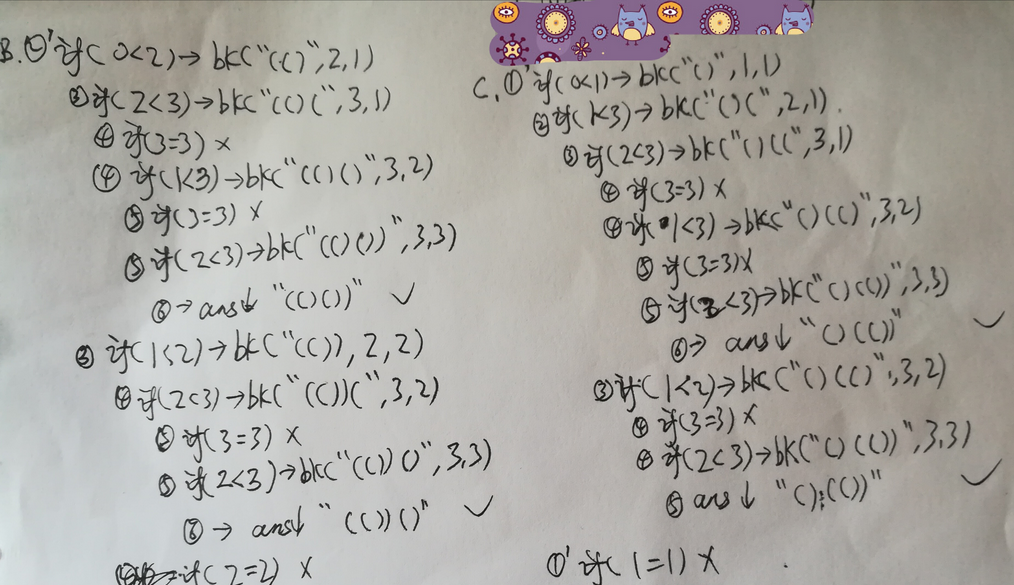 B. ②' if(0<2)→bk("(()",2,1)
③ if(2<3)→bk("(()(",3,1)
④ if(3=3) ×
④ if(1<3)→bk("(()()",3,2)
⑤ if(3=3) ×
⑤ if(2<3)→bk("(()())",3,3)
⑥→ ans↓ "(()())" ✓
③ if(1<2)→bk("(()),2,2)
④ if(2<3)→bk("(())(",3,2)
⑤ if(3=3) ×
⑤ if(2<3)→bk("(())()",3,3)
⑥→ ans↓ "(())()" ✓
if(2=2) ×
C. ①' if(0<1)→bk("()",1,1)
② if(1<3)→bk("()(",2,1).
③ if(2<3)→bk("()((",3,1)
④ if(3=3) ×
④ if(1<3)→bk("()(()",3,2)
⑤ if(3=3)×
⑤ if(2<3)→bk("()(())",3,3)
⑥→ ans↓ "()(())" ✓
③ if(1<2)→bk("()(()",3,2)
④ if(3=3) ×
④ if(2<3)→bk("()(())",3,3)
⑤ ans↓ "()(())" ✓
①' if(1=1) ×